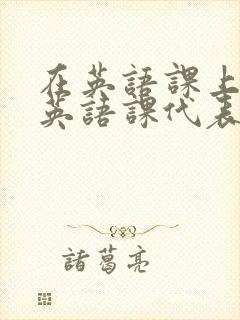 在英語課上
英語課代表
諸葛亮